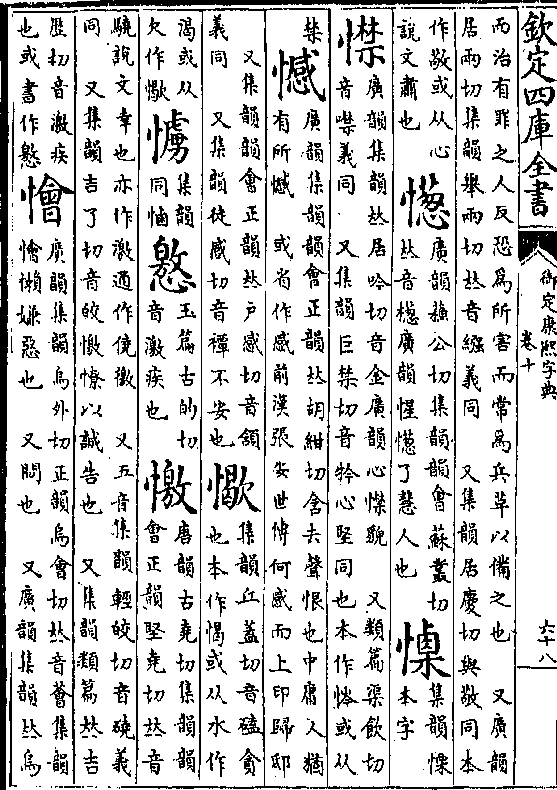 欽定四庫全書
御定康熙字典
卷十
六十八
而治有罪之人反恐為所害而常為兵革以備之也 又廣韻
居兩切集韻舉兩切𠀤音繦義同 又集韻居慶切與敬同本
作敬或从心
說文肅也
憽
廣韻蘇公切集韻韻會蘇叢切
𠀤音檧廣韻惺憽了慧人也
集韻慄
本字
㦗
廣韻集韻𠀤居吟切音金廣韻心㦗貌 又類篇渠飲切
音噤義同 又集韻巨禁切音 心堅固也本作 或从
禁
憾
廣韻集韻韻會正韻𠀤胡紺切含去聲恨也中庸人猶
有所憾 或省作感前漢張安世傳何感而上印歸邸
又集韻韻會正韻𠀤戶感切音頷
義同 又集韻徒感切音禫不安也
集韻丘蓋切音磕貪
也本作愒或从水作
渴或从
欠作
集韻
同
憼
玉篇古的切
音激疾也
憿
唐韻古堯切集韻韻
會正韻堅堯切𠀤音
驍說文幸也亦作激通作僥徼 又五音集韻輕皎切音磽義
同 又集韻吉了切音皎憿憭以誠告也 又集韻類篇𠀤吉
歷切音激疾
也或書作
懀
廣韻集韻烏外切正韻烏會切𠀤音薈集韻
懀懶嫌惡也 又悶也 又廣韻集韻𠀤烏